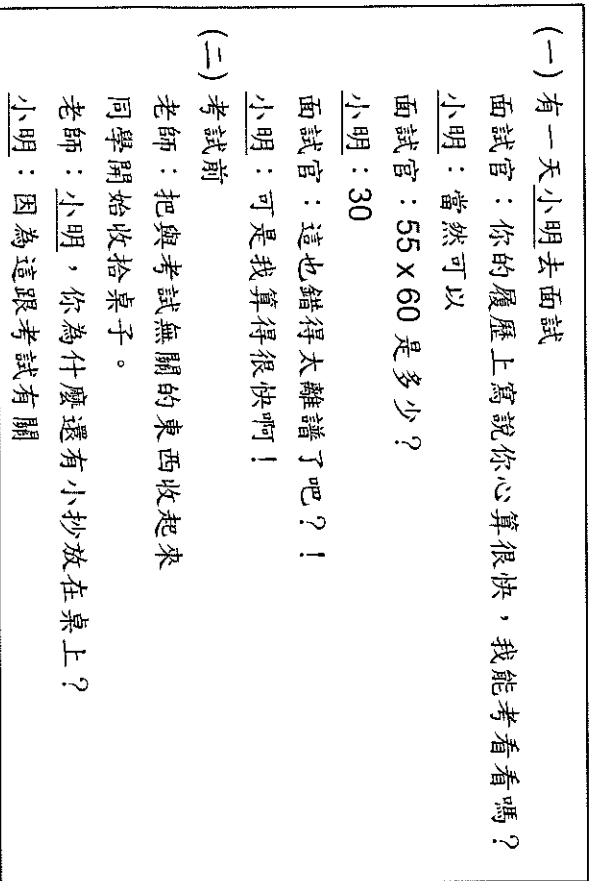 (一) 有一天小明去面試
面試官：你的履歷上寫說你心算很快，我能考看看嗎？
小明：當然可以
面試官：55 x 60 是多少？
小明：30
面試官：這也錯得太離譜了吧？！
小明：可是我算得很快啊！
(二) 考試前
老師：把與考試無關的東西收起來
同學開始收拾桌子。
老師：小明，你為什麼還有小抄放在桌上？
小明：因為這跟考試有關